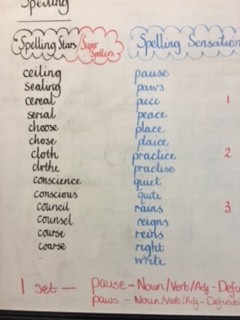 Spelling
Spelling Stars
Super Spellers
Spelling Sensation
ceiling
sealing
cereal
serial
choose
chose
cloth
clothe
conscience
conscious
council
counsel
course
coarse
pause
paws
piece
peace
place
plaice
practice
practise
quiet
quite
rains
reigns
reins
right
write
1.
2.
3.
1 set — pause - Noun/Verb/Adj - Defin
paws - Noun/Verb/Adj - Definiti